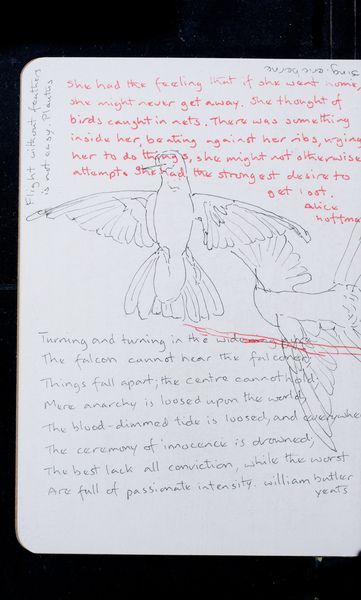 Flight without feathers
is not easy. Plautus
sing. eric berne
She had the feeling that if she went home,
she might never get away. She thought of
birds caught in nets. There was something
inside her, beating against her ribs, urging
her to do things, she might not otherwise
attempt. She had the strongest desire to
get lost.
alice
hoffman
Turning and turning in the widening gyre
The falcon cannot hear the falconer;
Things fall apart; the centre cannot hold;
Mere anarchy is loosed upon the world,
The blood-dimmed tide is loosed, and everywhere
The ceremony of innocence is drowned;
The best lack all conviction, while the worst
Are full of passionate intensity. william butler
yeats